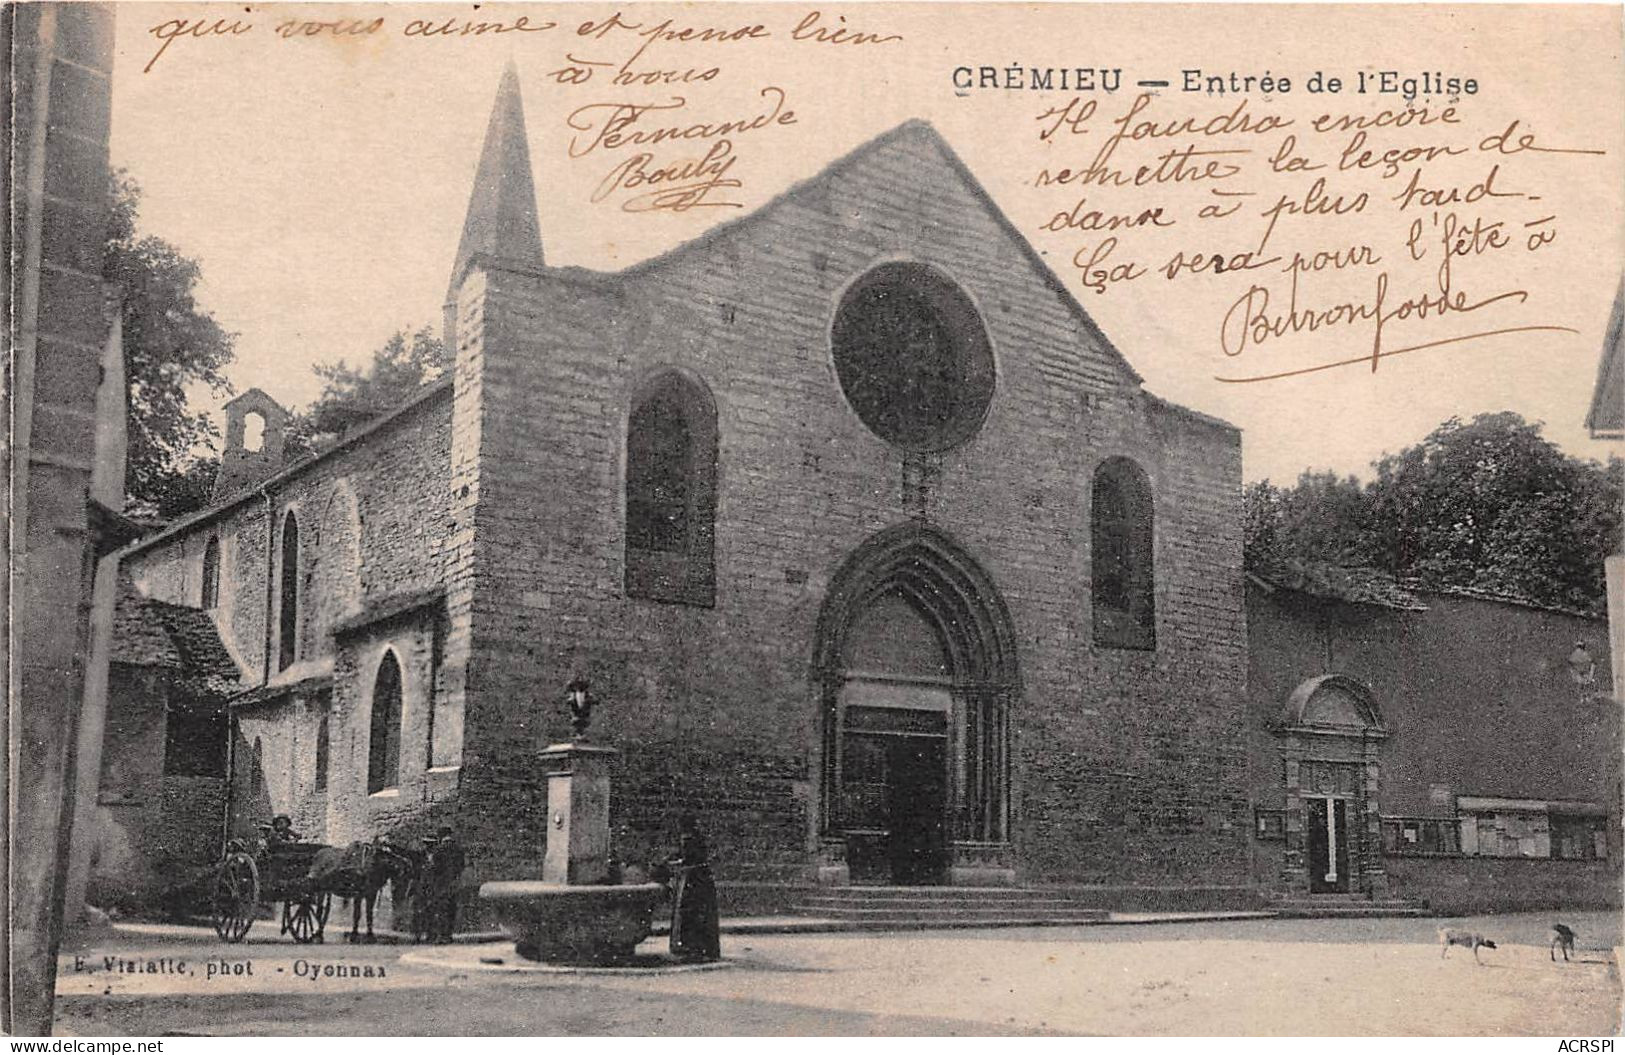 qui vous aime et pense bien
à vous
Fernande
Bouly
CRÉMIEU — Entrée de l'Eglise
Il faudra encore
remettre la leçon de
danse à plus tard -
Ça sera pour l'fête à
Buronfosse
E. Vialatte, phot - Oyonnax
ACRSPI